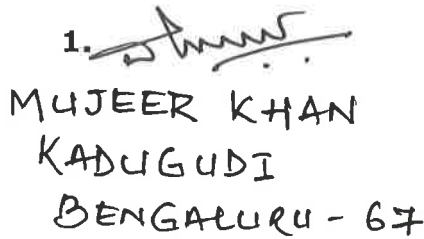 1.
MUJEER KHAN
KADUGUDI
BENGALURU - 67